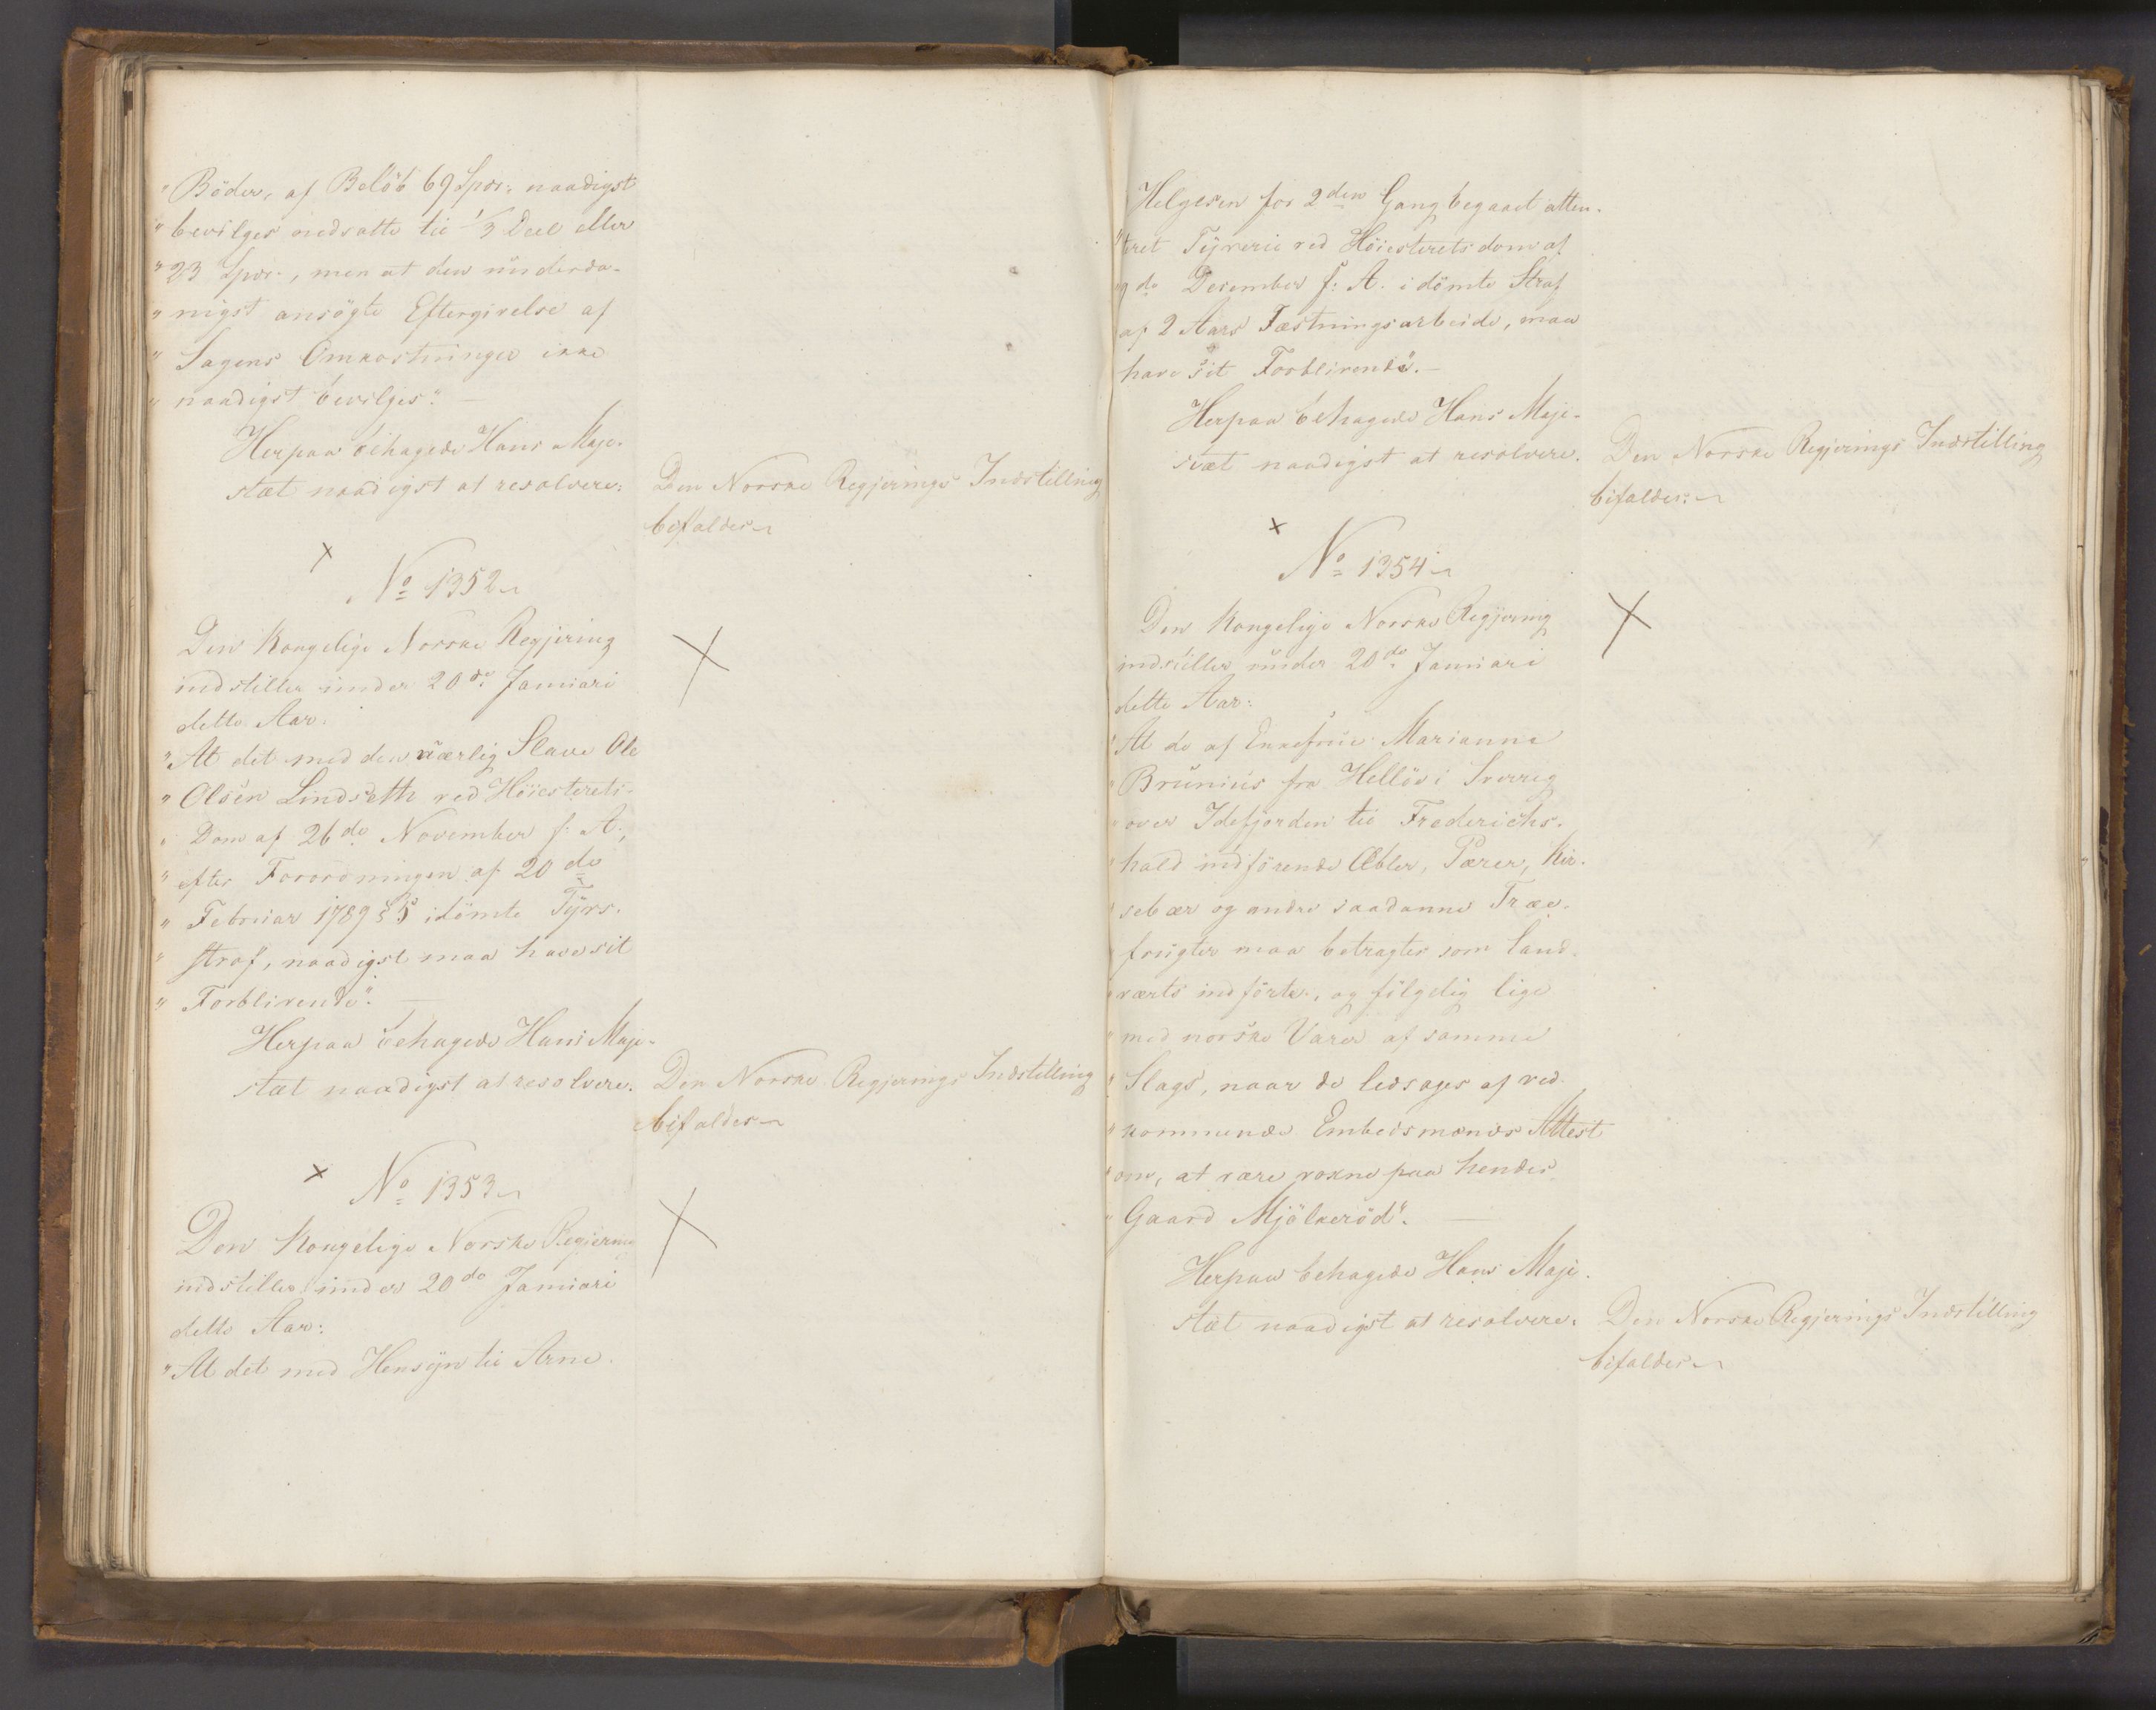 "Böder, af Belöb 69 Spor: naadigst
"bevilges nedsatte til 1/3 Deel eller
"23 Spor., men at den underda-
"nigst ansögte Eftergivelse af
"Sagens Omkostninger ikke
"naadigst bevilges". —
Herpaa behagede Hans Maje-
stæt naadigst at resolvere:
Den Norske Regjerings Indstilling
bifaldes
No 1352
Den Kongelige Norske Regjering
indstiller under 20de Januari
dette Aar:
"At det med den uærlig Slave Ole
"Olsen Lindseth ved Höiesterets-
"Dom af 26de November f: A.,
"efter Forordningen af 20de
"Februar 1789 § 5 idömte Tyvs-
"straf, naadigst maa have sit
"Forblivende". —
Herpaa behagede Hans Maje-
stæt naadigst at resolvere:
Den Norske Regjerings Indstilling
bifaldes
No 1353
Den Kongelige Norske Regjering
indstiller under 20de Januari
dette Aar:
"At det med Hensyn til Arne
Helgesen for 2den Gang begaaet atten-
"teret Tyverie ved Höiesteretsdom af
9de December f: A. idömte Straf
af 2 Aars Fæstningsarbeide, maa
have sit Forblivende". —
Herpaa behagede Hans Maje-
stæt naadigst at resolvere.
Den Norske Regjerings Indstilling
bifaldes:
No 1354
Den Kongelige Norske Regjering
indstiller under 20de Januari
dette Aar:
"At de af Enkefrue Marianne
"Brunius fra Hellöv i Sverrig
"over Idefjorden til Frederichs-
"hald indförende Æbler, Pærer, Kir-
"sebær og andre saadanne Træe-
"frugter maa betragtes som land-
"værts indförte, og fölgelig lige
"med norske Varer af samme
"Slags, naar de ledsages af ved-
"kommende Embedsmænds Attest
"om, at være voxne paa hendes
"Gaard Mjölkeröd". —
Herpaa behagede Hans Maje-
stæt naadigst at resolvere.
Den Norske Regjerings Indstilling
bifaldes